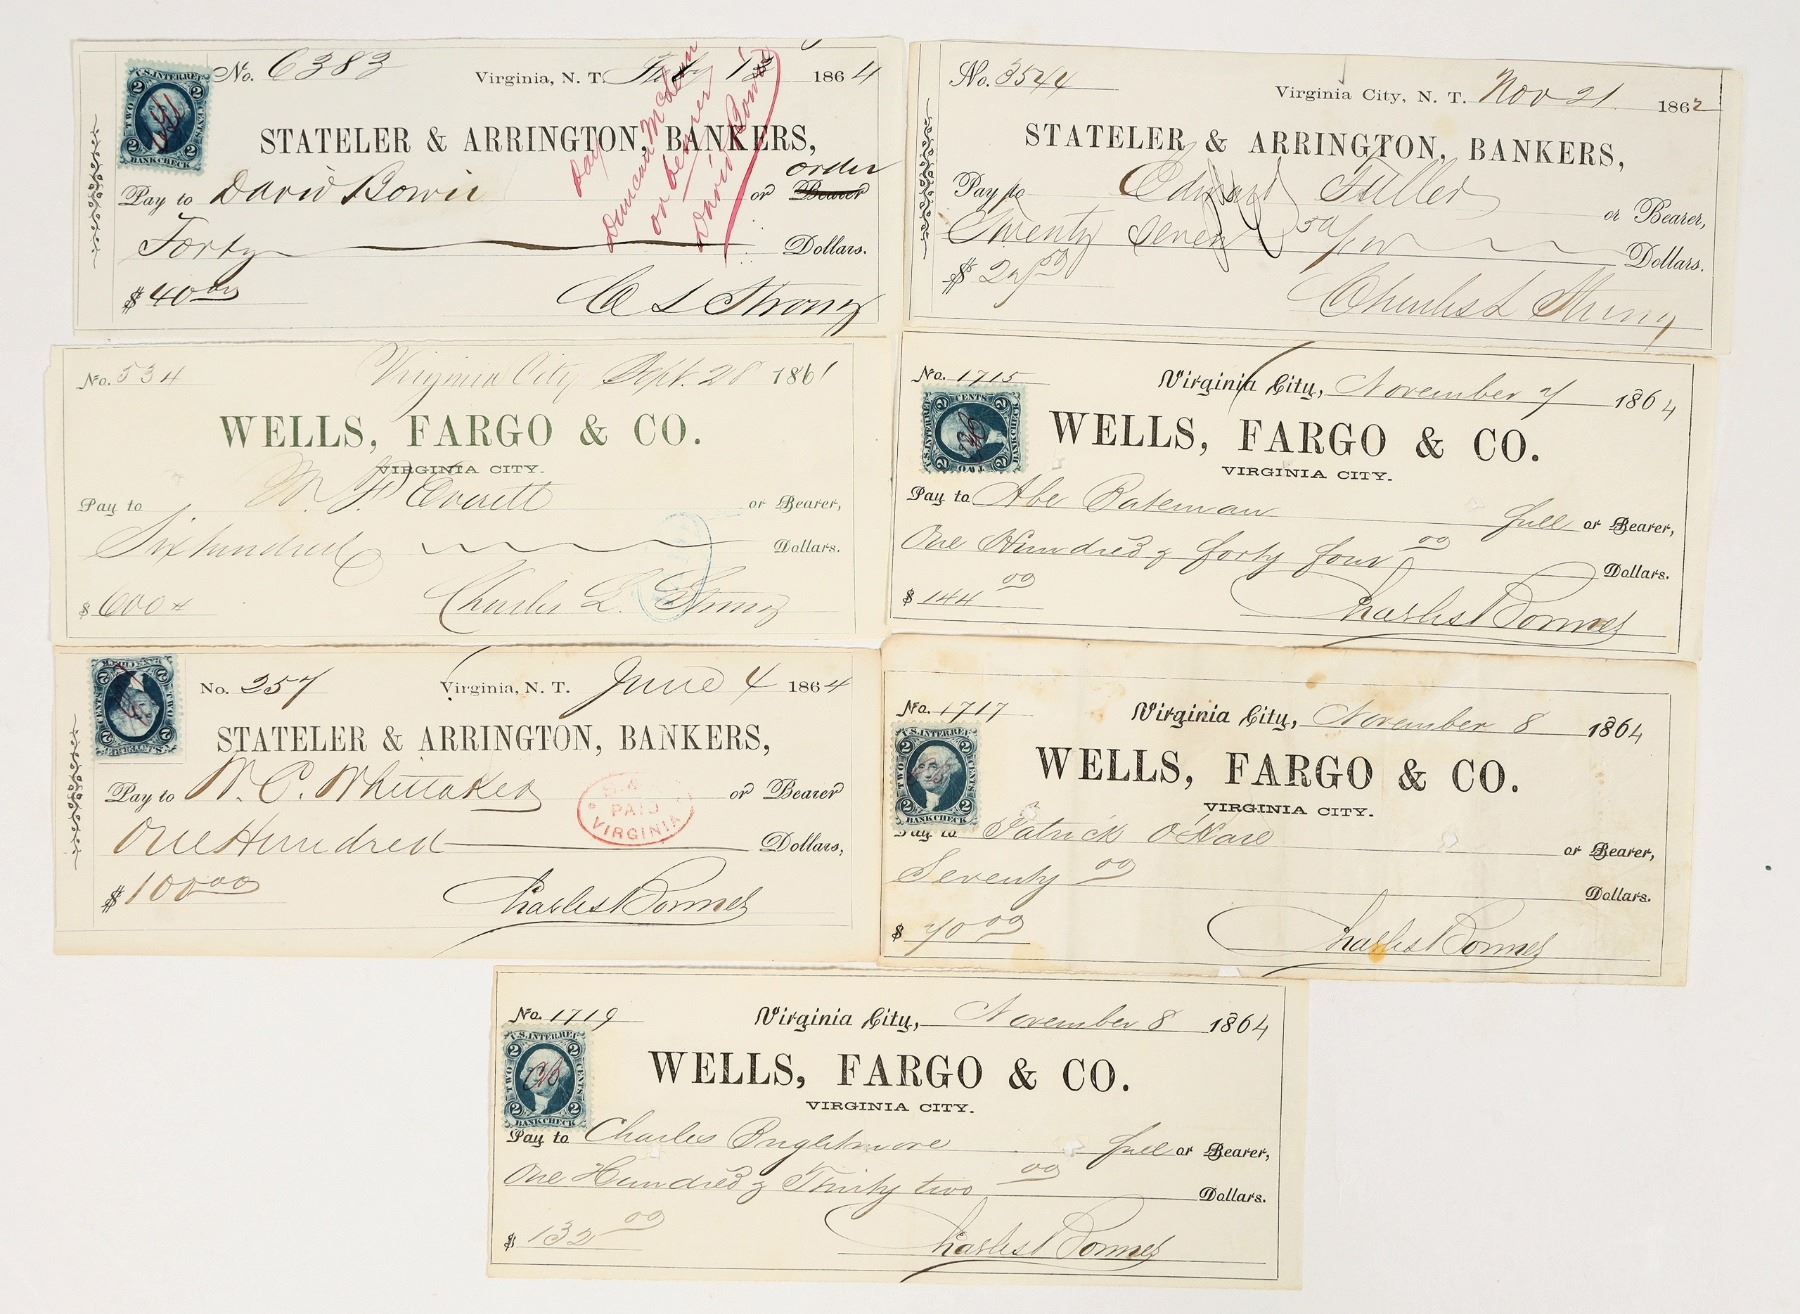 No. 6383 Virginia, N. T. 13 1864
U.S. INTER. REV.
2 2
TWO CENTS
2 2
BANK CHECK
STATELER & ARRINGTON, BANKERS,
order
Pay to David Bowie or Bearer
Forty Dollars.
$40 00
C L Strong
Pay
Duncan McLean
or bearer
David Bowie
No. 3544 Virginia City, N. T. Nov 21 1862
STATELER & ARRINGTON, BANKERS,
Pay to Edward Fuller or Bearer,
Twenty Seven 50/100 Dollars.
$ 27 50
Charles L Strong
No. 534 Virginia City Sept. 28 1861
WELLS, FARGO & CO.
VIRGINIA CITY.
Pay to M. P. Everett or Bearer,
Six hundred Dollars.
$ 600
Charles L. Strong
No. 1715 Virginia City, November 7 1864
U.S. INTER. REV.
2 2
TWO CENTS
2 2
BANK CHECK
WELLS, FARGO & CO.
VIRGINIA CITY.
Pay to Abe Bateman full or Bearer,
One Hundred & forty four 00 Dollars.
$ 144 00
Charles Bonner
No. 257 Virginia, N. T. June 4 1864
U.S. INTER. REV.
2 2
TWO CENTS
2 2
BANK CHECK
STATELER & ARRINGTON, BANKERS,
Pay to W. C. Whittaker or Bearer
One Hundred Dollars,
$ 100 00
Charles Bonner
PAID
VIRGINIA
No. 1717 Virginia City, November 8 1864
U.S. INTER. REV.
2 2
TWO CENTS
2 2
BANK CHECK
WELLS, FARGO & CO.
VIRGINIA CITY.
Pay to Patrick O'Hare or Bearer,
Seventy 00 Dollars.
$ 70 00
Charles Bonner
No. 1719 Virginia City, November 8 1864
U.S. INTER. REV.
2 2
TWO CENTS
2 2
BANK CHECK
WELLS, FARGO & CO.
VIRGINIA CITY.
Pay to Charles full or Bearer,
One Hundred & Thirty two 00 Dollars.
$ 132 00
Charles Bonner